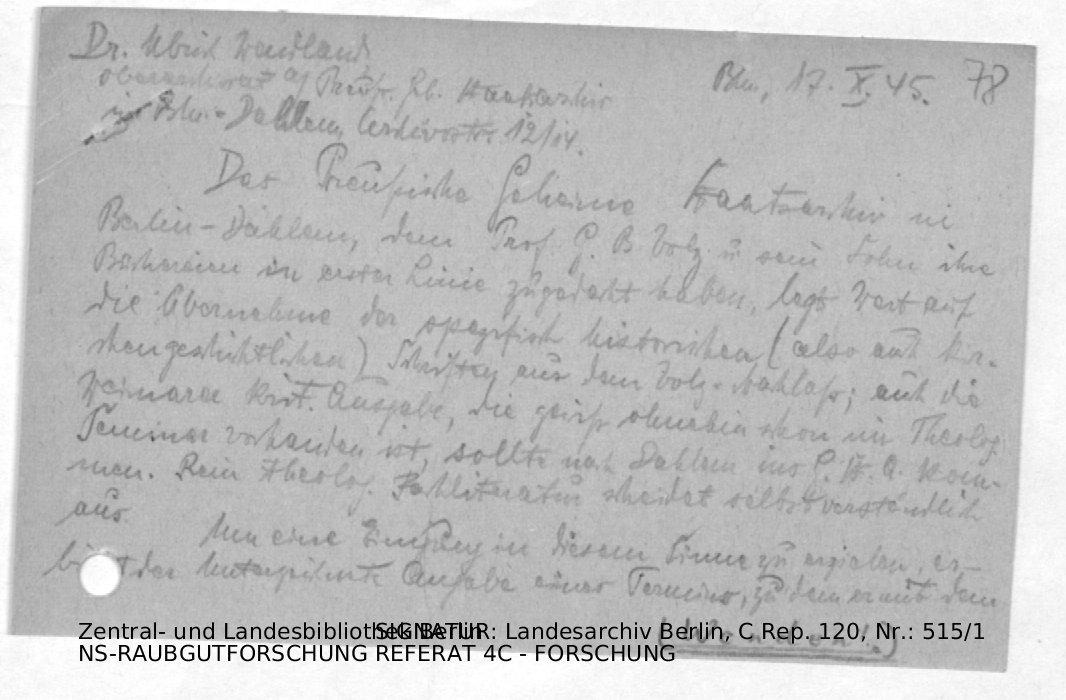 Dr. Ulrich Wendland
Oberarchivrat a/ Preuß. Geh. Staatsarchiv
in Bln.-Dahlem, Archivstr. 12/14.
Bln., 17. X. 45. 78
Das Preußische Geheime Staatsarchiv in
Berlin-Dahlem, dem Prof. G. B. Volz u. sein Sohn ihre
Büchereien in erster Linie zugedacht haben, legt Wert auf
die Übernahme der spezifisch historischen (also auch kir-
chengeschichtlichen) Schriften aus dem Volz-Nachlaß; auch die
Weimarer krit. Ausgabe, die gewiß ohnehin schon im Theolog.
Seminar vorhanden ist, sollte nach Dahlem ins G. St. A. kom-
men. Rein theolog. Fachliteratur scheidet selbstverständlich
aus.
Um eine Einigung in diesem Sinne zu erzielen, er-
bittet der Unterzeichnete Angabe eines Termins, zu dem er mit dem
Zentral- und Landesbibliothek Berlin
SIGNATUR: Landesarchiv Berlin, C Rep. 120, Nr.: 515/1
NS-RAUBGUTFORSCHUNG REFERAT 4C - FORSCHUNG